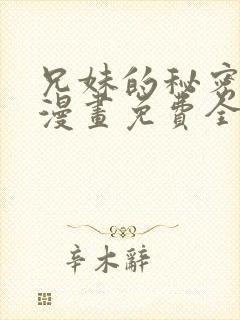 兄妹的秘密
漫畫免費全
辛木辭